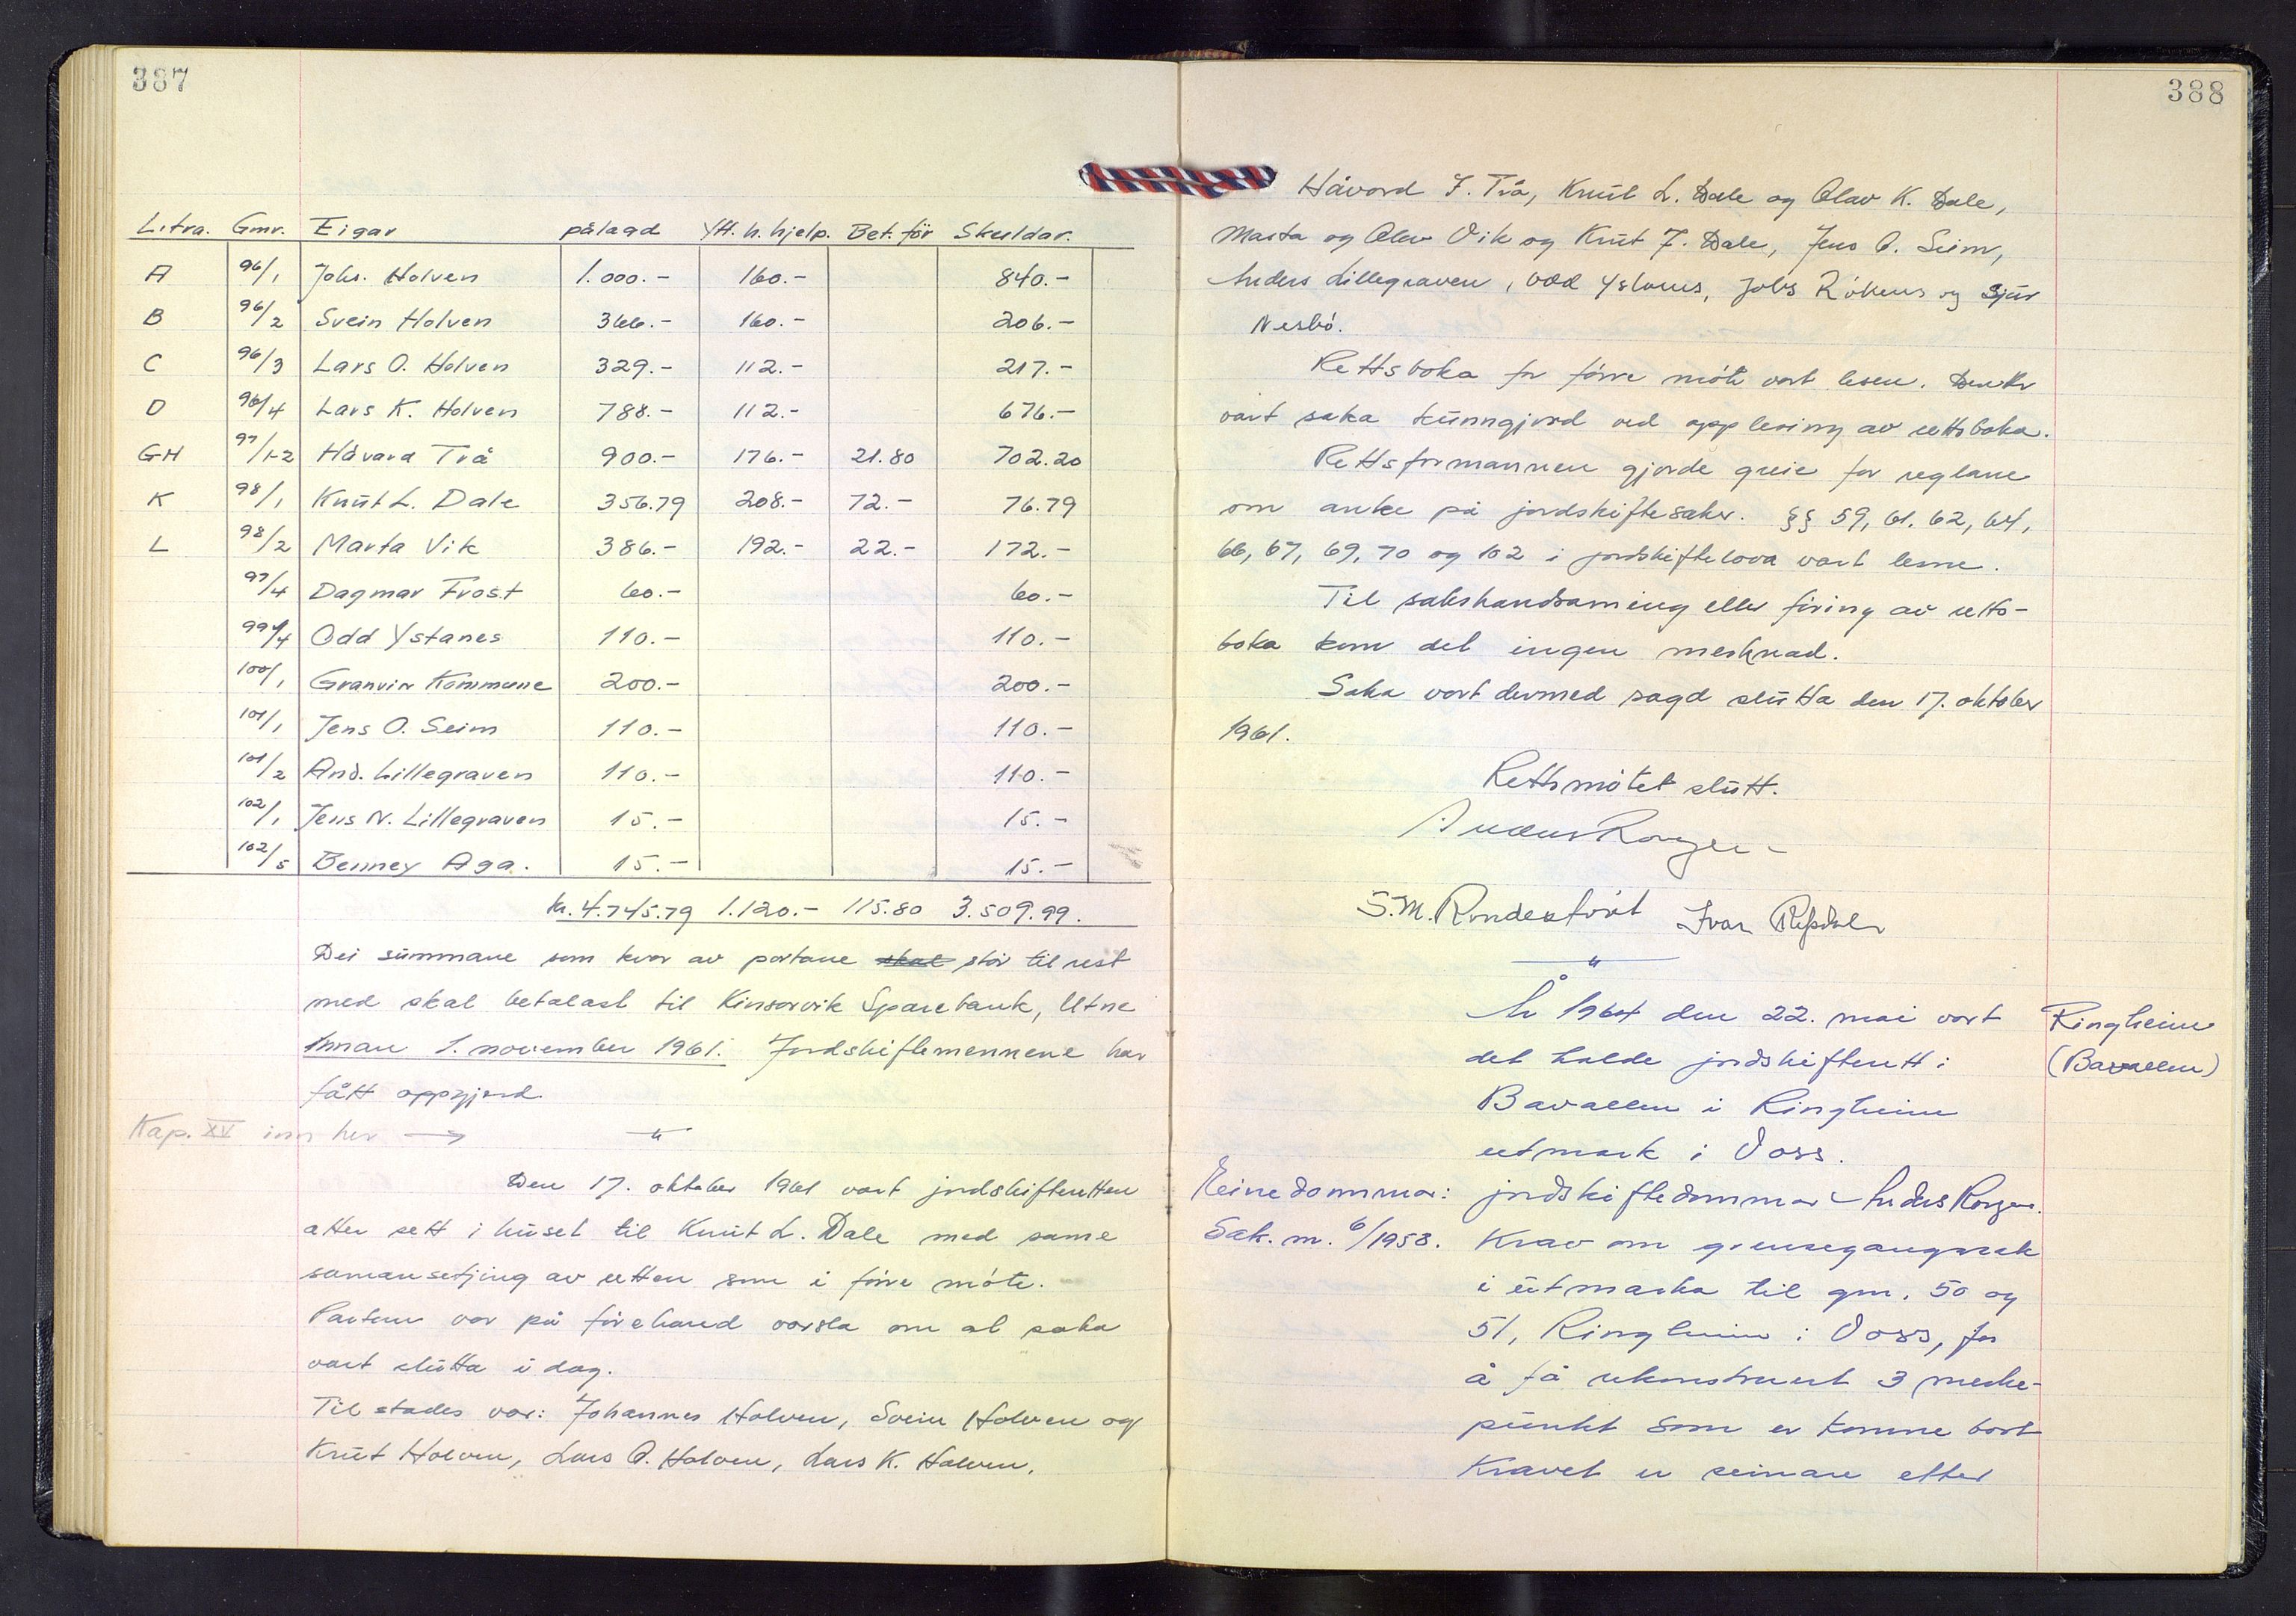 387
Litra. Gmr. Eigar pålagd Ytt. h. hjelp. Bet. för Skuldar.
A 96/1 Johs. Holven 1.000.- 160.- 840.-
B 96/2 Svein Holven 366.- 160.- 206.-
C 96/3 Lars O. Holven 329.- 112.- 217.-
D 96/4 Lars K. Holven 788.- 112.- 676.-
GH 97/1-2 Håvard Trå 900.- 176.- 21.80 702.20
K 98/1 Knut L. Dale 356.79 208.- 72.- 76.79
L 98/2 Marta Vik 386.- 192.- 22.- 172.-
97/4 Dagmar Frost 60.- 60.-
99/4 Odd Ystanes 110.- 110.-
100/1 Granvin Kommune 200.- 200.-
101/1 Jens O. Seim 110.- 110.-
101/2 And. Lillegraven 110.- 110.-
102/1 Jens N. Lillegraven 15.- 15.-
102/5 Benney Aga. 15.- 15.-
kr. 4.745.79 1.120.- 115.80 3.509.99.
Dei summane som kvar av partane skal står til rest
med skal betalast til Kinsarvik Sparebank, Utne
innan 1. november 1961. Jordskiftemennene har
fått oppgjerd.
Kap. XV inn her →
Den 17. oktober 1961 vart jordskifteretten
atter sett i huset til Knut L. Dale med same
samansetjing av retten som i förre möte.
Partene var på förehand varsla om at saka
vart slutta i dag.
Til stades var: Johannes Holven, Svein Holven og
Knut Holven, Lars O. Holven, Lars K. Holven,
388
Håvard J. Trå, Knut L. Dale og Olav K. Dale,
Marta og Olav Vik og Knut J. Dale, Jens O. Seim,
Anders Lillegraven, Odd Ystanes, Johs Rökenes og Sjur
Nesbö.
Rettsboka for förre möte vart lesen. Deretter
vart saka kunngjord ved opplesing av rettsboka.
Rettsformannen gjorde greie for reglane
om anke på jordskiftesaker. §§ 59, 61, 62, 64,
66, 67, 69, 70 og 102 i jordskiftelova vart lesne.
Til sakshandsaming eller föring av retts-
boka kom det ingen merknad.
Saka vart dermed sagd slutta den 17. oktober
1961.
Rettsmötet slutt.
Anders Ronger
S. M. Rondestveit Ivar Røpdal
År 1964 den 22. mai vart
det halde jordskifterett i
Bavallen i Ringheim
utmark i Voss.
Ringheim
(Bavallen)
Eine dommar: jordskiftedommar Anders Ronger.
Sak. nr. 6/1958. Krav om grensegangssak
i utmarka til gnr. 50 og
51, Ringheim i Voss, for
å få rekonstruert 3 merke-
punkt som er komne bort
Kravet er seinare etter